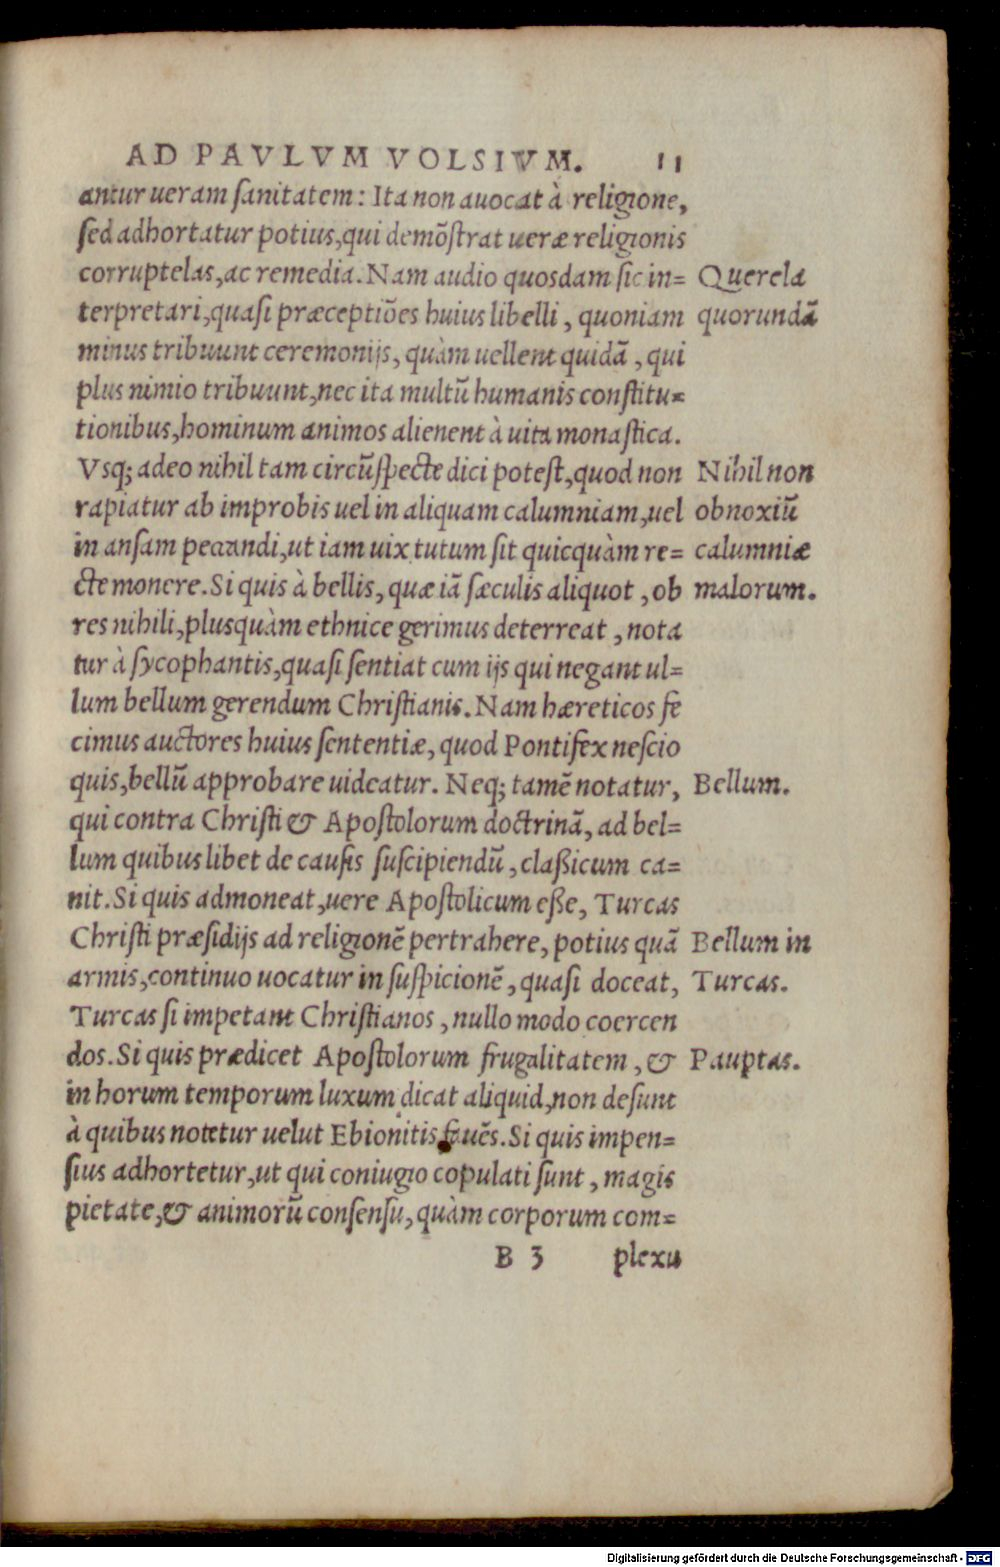 AD PAVLVM VOLSIVM. 11
antur ueram sanitatem: Ita non auocat à religione,
sed adhortatur potius, qui demōstrat ueræ religionis
corruptelas, ac remedia. Nam audio quosdam sic in= Querela
terpretari, quasi præceptiōes huius libelli, quoniam quorundā
minus tribuunt ceremonijs, quàm uellent quidā, qui
plus nimio tribuunt, nec ita multū humanis constitu=
tionibus, hominum animos alienent à uita monastica.
Vsq; adeo nihil tam circūspecte dici potest, quod non Nihil non
rapiatur ab improbis uel in aliquam calumniam, uel obnoxiū
in ansam peccandi, ut iam uix tutum sit quicquàm re= calumniæ
cte monere. Si quis à bellis, quæ iā sæculis aliquot, ob malorum.
res nihili, plusquàm ethnice gerimus deterreat, nota
tur à sycophantis, quasi sentiat cum ijs qui negant ul=
lum bellum gerendum Christianis. Nam hæreticos fe
cimus auctores huius sententiæ, quod Pontifex nescio
quis, bellū approbare uideatur. Neq; tamē notatur, Bellum.
qui contra Christi & Apostolorum doctrinā, ad bel=
lum quibus libet de causis suscipiendū, classicum ca=
nit. Si quis admoneat, uere Apostolicum esse, Turcas
Christi præsidijs ad religionē pertrahere, potius quā Bellum in
armis, continuo uocatur in suspicionē, quasi doceat, Turcas.
Turcas si impetant Christianos, nullo modo coercen
dos. Si quis prædicet Apostolorum frugalitatem, & Pauptas.
in horum temporum luxum dicat aliquid, non desunt
à quibus notetur uelut Ebionitis fauēs. Si quis impen=
sius adhortetur, ut qui coniugio copulati sunt, magis
pietate, & animorū consensu, quàm corporum com=
B 3 plexu
Digitalisierung gefördert durch die Deutsche Forschungsgemeinschaft - DFG